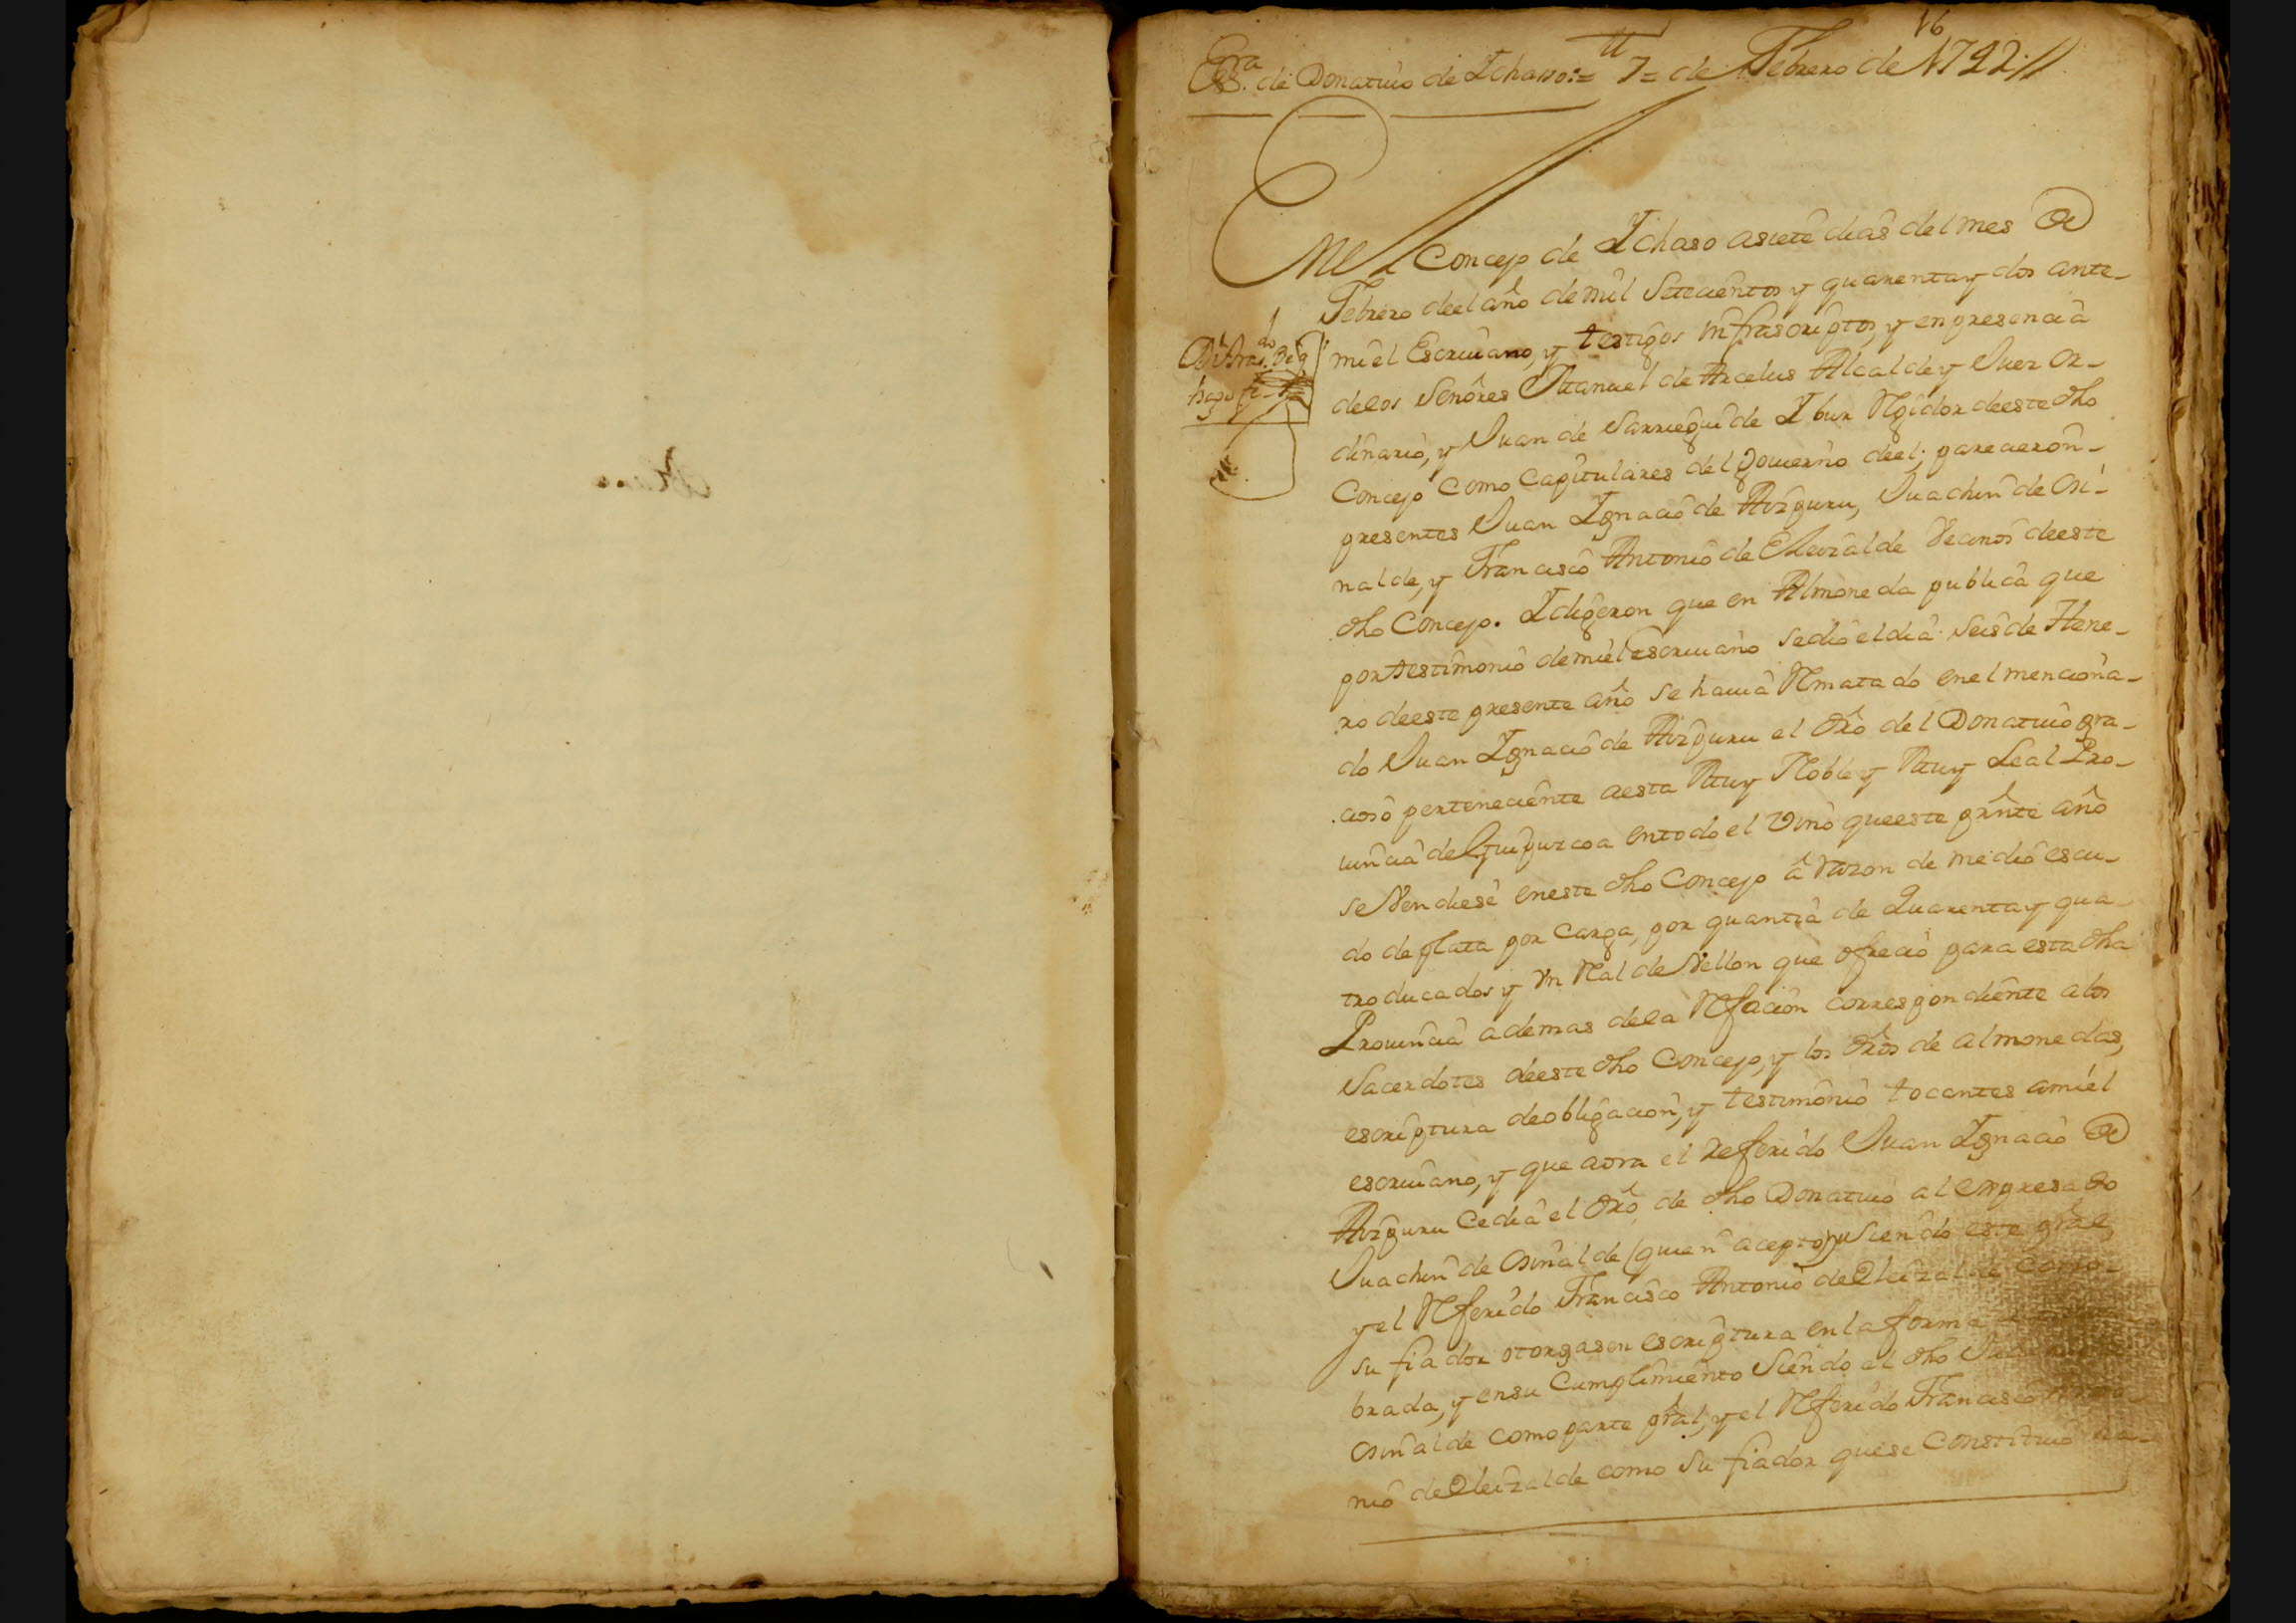 16
Essra. de Donatiuo de Ichasso:= a 7= de Febrero de 1742.//
En el Concejo de Ichaso a siete dias del mes de
Febrero de el año de mil Setecientos y quarenta y dos ante-
mi el Escriuano, y testigos infrascriptos, y en presencia
de los Señores Manuel de Arcelus Alcalde y Juez or-
dinario, y Juan de Sarriegui de Ibur Rgidor de este dho
Concejo como Capitulares del gouierno de el; parecieron-
presentes Juan Ignacio de Aizpuru, Juachin de Osi-
nalde, y Francisco Antonio de Eleizalde Vecinos de este
dho Concejo. I digeron que en Almoneda publica que
por testimonio de mi el escriuano se dio el dia seis de Hene-
ro de este presente año se hauia Rmatado en el menciona-
do Juan Ignacio de Aizpuru el dro del Donatiuo gra-
cioso perteneciente a esta Muy Noble y Muy Leal Pro-
uincia de Guipuzcoa en todo el Vino que este prnte año
se Vendiese en este dho Concejo â razon de medio escu-
do de plata por Carga, por quantia de Quarenta y qua-
tro ducados y Vn Ral de Vellon que ofrecio para esta dha
Prouincia ademas de la Rfacion correspondiente a los
Sacerdotes de este dho Concejo, y los dros de almonedas,
escriptura de obligacion, y testimonio tocantes a mi el
escriuano, y que aora el referido Juan Ignacio de
Aizpuru Cedia el dro de dho Donatiuo al expresado
Juachin de Osinalde (quien acepto) y Siendo este pral,
y el Rferido Francisco Antonio de Eleizalde como-
su fiador otorgasen escriptura en la forma
brada, y en su Cumplimiento Siendo el dho
Osinalde como parte pral, y el Rferido Francisco Anto-
nio de Eleizalde como su fiador que se Constituio